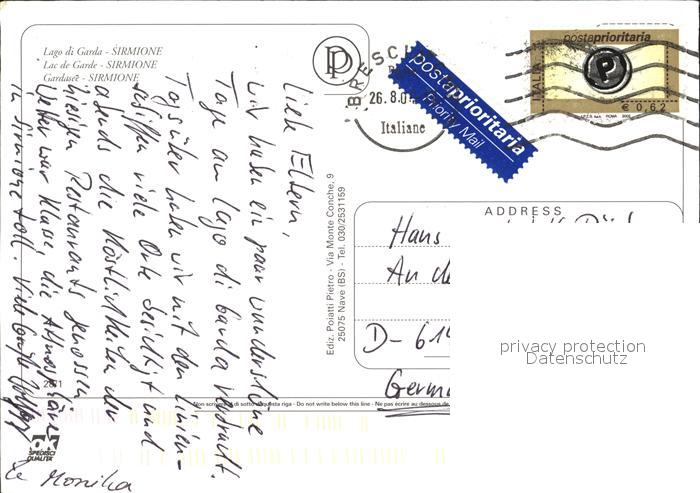 Lago di Garda - SIRMIONE
Lac de Garde - SIRMIONE
Gardasee - SIRMIONE
Liebe Eltern,
wir haben ein paar wunderschöne
Tage am Lago di Garda verbracht.
Tagsüber haben wir mit den Linien-
schiffen viele Orte besichtigt und
abends die Köstlichkeiten der
hiesigen Restaurants genossen.
Wetter war klasse, die Atmosphäre
in Sirmione toll. Viele Grüße
Monika
2871
SPEDISCI QUALITÀ
Ediz. Poiatti Pietro - Via Monte Conche, 9
25075 Nave (BS) - Tel. 030/2531159
P
BRESCIA
26.8.0
Italiane
postaprioritaria
Priority Mail
postaprioritaria
P
ITALIA
€ 0,62
I.P.Z.S. S.p.A. ROMA 2002
ADDRESS
Hans
An de
D-614
Germ
Non scrivere al di sotto di questa riga - Do not write below this line - Ne pas écrire au dessous de
privacy protection
Datenschutz